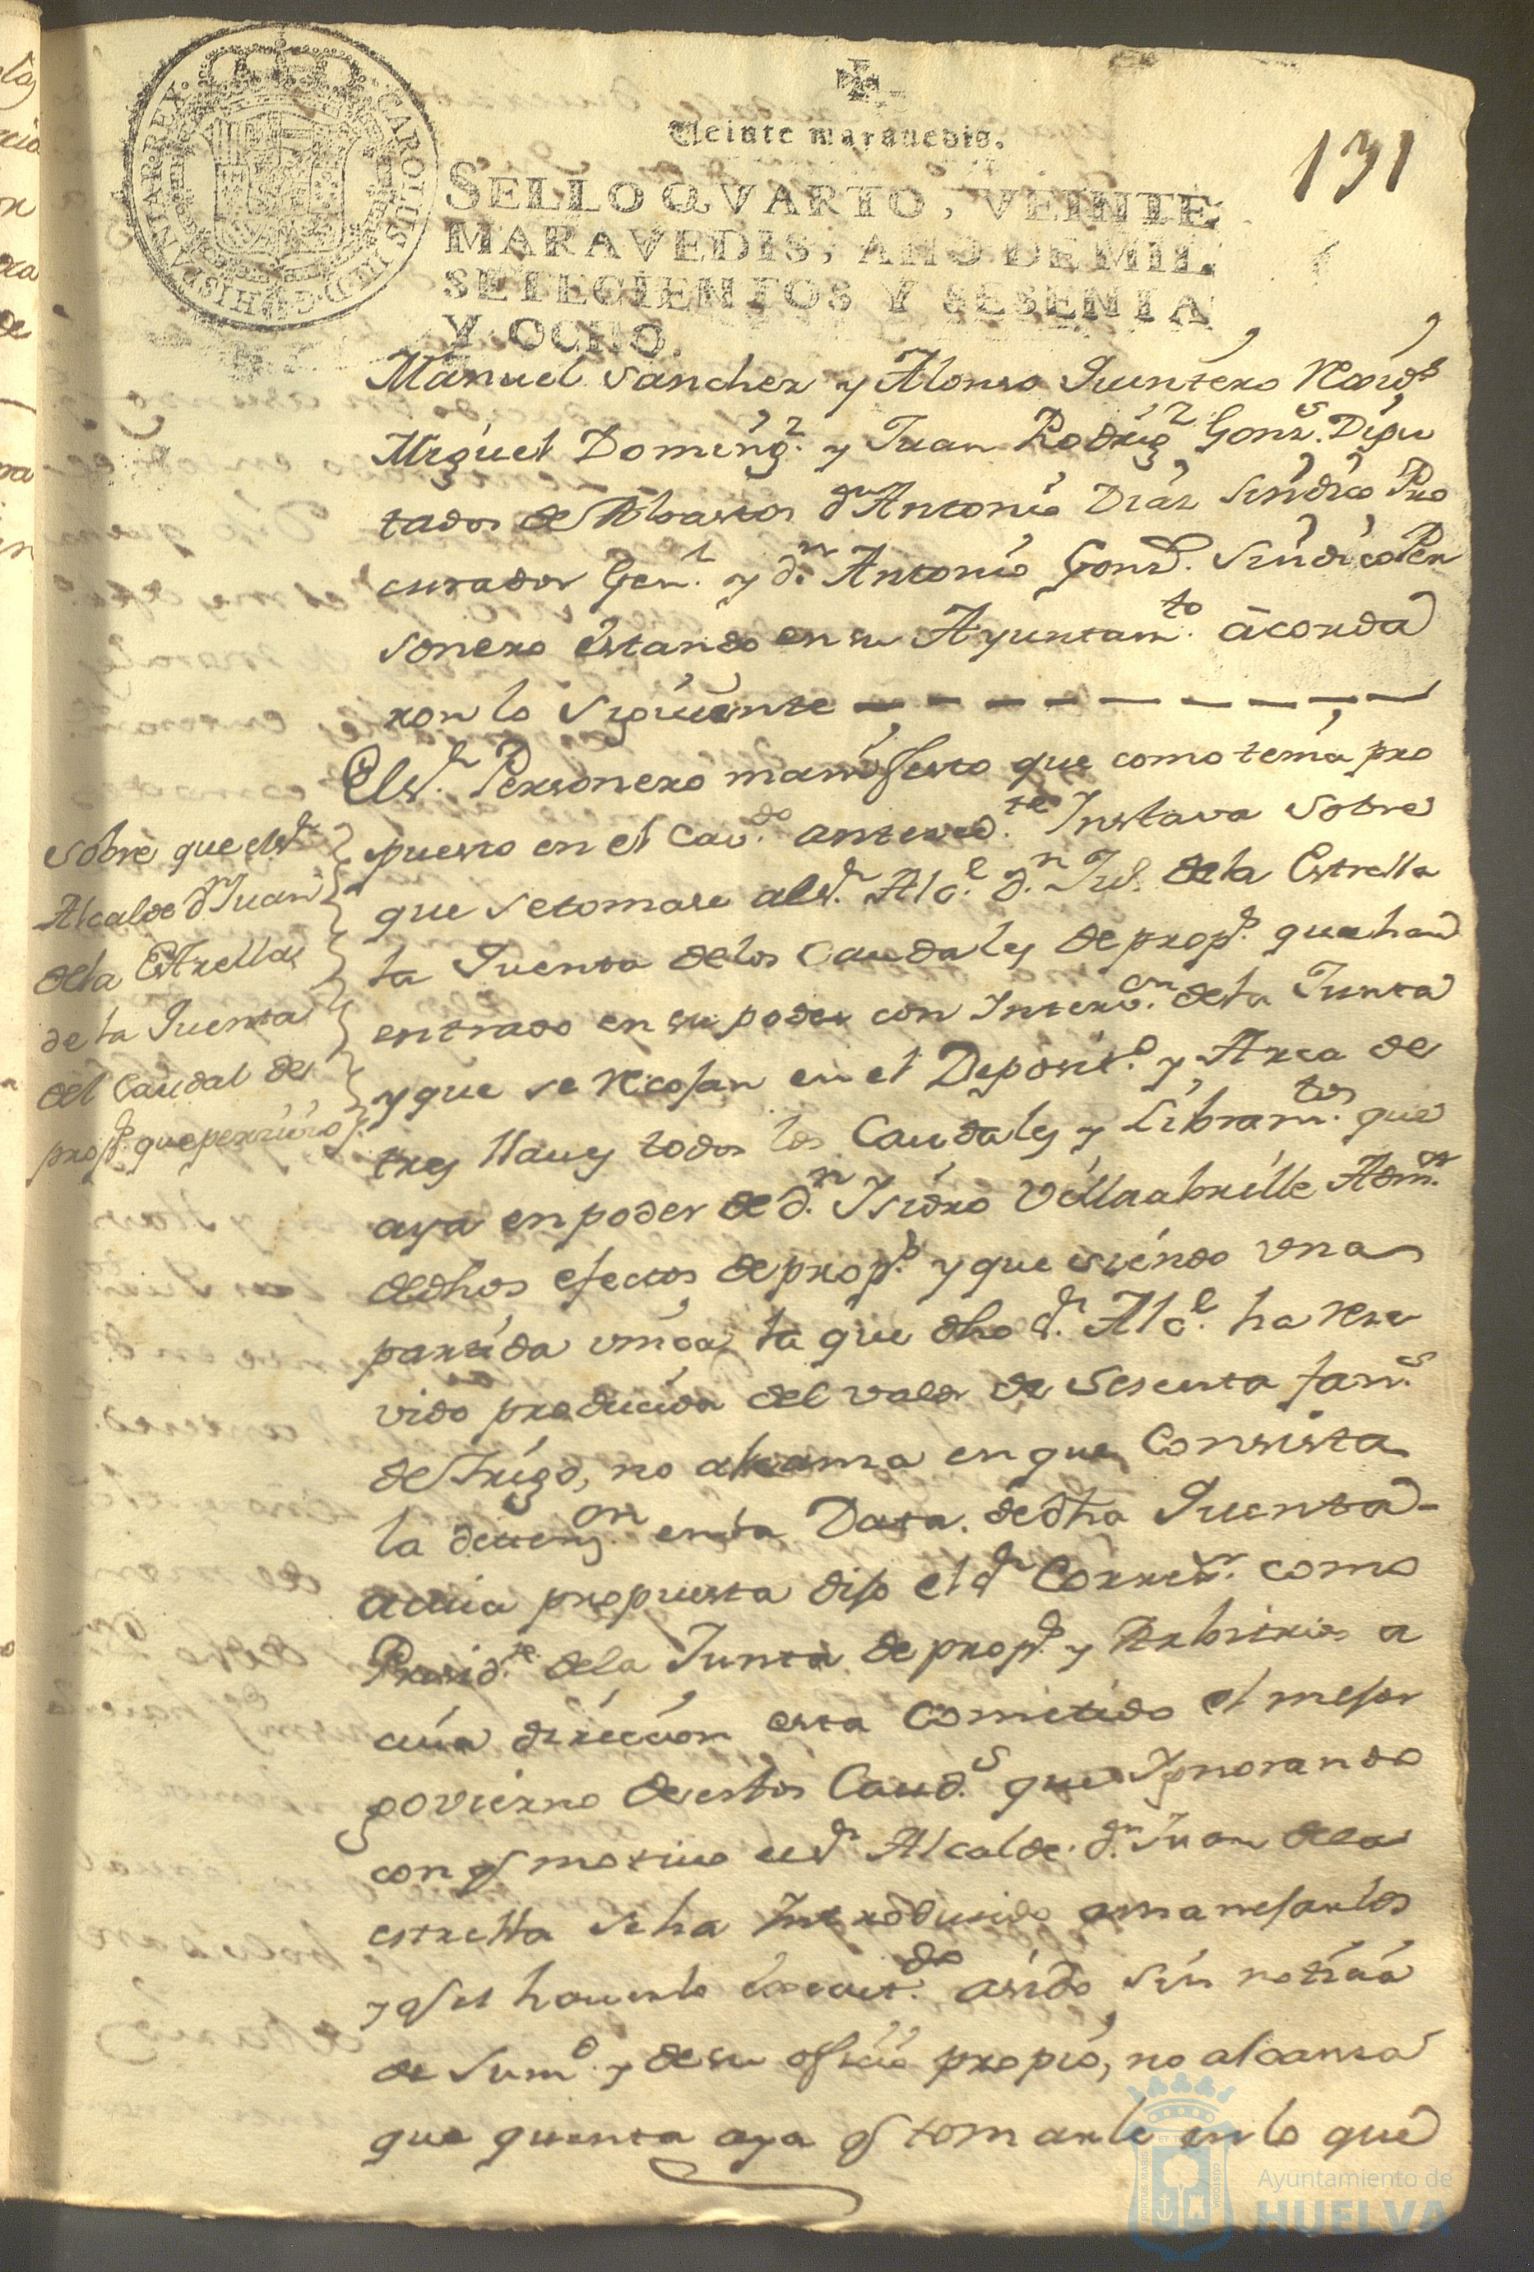 131
Veinte maravedis.
SELLO QVARTO, VEINTE
MARAVEDIS, AÑO DE MIL
SETECIENTOS Y SESENTA
Y OCHO.
CAROLUS III D G HISPANIAR REX
Manuel Sanchez y Alonso Quintero Rexid.s
Miguel Doming.z y Juan Rodrig.z Gonz.s Dipu
tados de Abastos d.n Antonio Diaz Sindico Pro
curador Gen.l y d.n Antonio Gonz. Sindico Per
sonero estando en su Ayuntam.to acorda
ron lo siguiente
El S.r Personero manifesto que como tenia pro
puesto en el Cav.do anteced.te Instava sobre
que se tomase al S.r Alc.e d.n Ju. de la Estrella
la Quenta de los Caudales de prop.s que han
entrado en su poder con Interv.on de la Junta
y que se recojan en el Deposit.o y Arca de
tres llaves todos los Caudales y Libram.tos que
aya en poder de d.n Isidro Villaabrille Adm.or
de dhos efectos de prop.s y que siendo una
partida unica la que dho S.r Alc.e ha reze
vido producida del valor de sesenta fan.s
de trigo, no alcanza en que consista
la detenz.on en la Data de dha Quenta
a cuia propuesta dijo el S.r Correx.r como
Presid.te de la Junta de prop.s y Arbitrios a
cuia direccion esta cometido el mejor
govierno de estos Caud.s que Ignorando
con q.e motivo el S.r Alcalde d.n Juan de la
estrella se ha Introducido a manejarlos
y q.e el haverlo executt.do asido sin noticia
de Sum.d y de su oficio propio, no alcanza
que quenta aya q.e tomarle en lo que
sobre que el S.r
Alcalde d.n Juan
de la Estrella
de la Quenta
del Caudal de
prop.s que perzivio
Ayuntamiento de
HUELVA